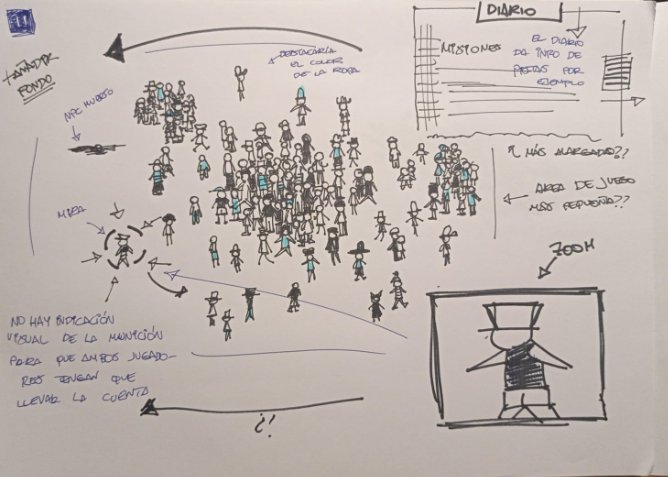 11
+AÑADIR
FONDO
NPC MUERTO
MIRA
* DESTACARÍA
EL COLOR
DE LA ROPA
DIARIO
MISIONES
EL DIARIO
DA INFO DE
PISTAS POR
EJEMPLO
MÁS ALARGADO??
AREA DE JUEGO
MÁS PEQUEÑA??
ZOOM
NO HAY INDICACIÓN
VISUAL DE LA MUNICIÓN
PARA QUE AMBOS JUGADO-
RES TENGAN QUE
LLEVAR LA CUENTA
¿!